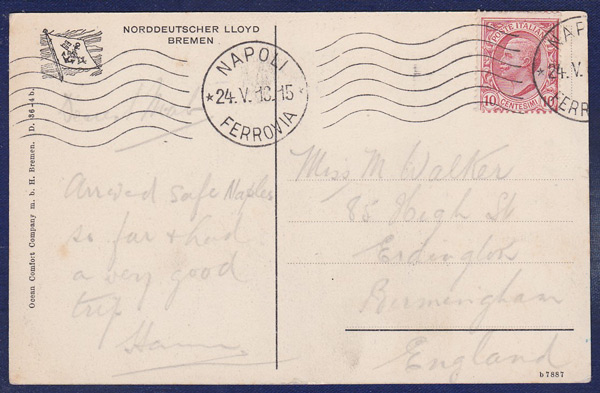 NORDDEUTSCHER LLOYD
BREMEN
NAPOLI
*24.V.13.15*
FERROVIA
POSTE ITALIANE
10 CENTESIMI 10
NAP
*24.V.
FERRO
Arrived safe Naples
so far & had
a very good
trip
Miss M Walker
85 High St
Erdington
Birmingham
England
Ocean Comfort Company m. b. H. Bremen.
b7887